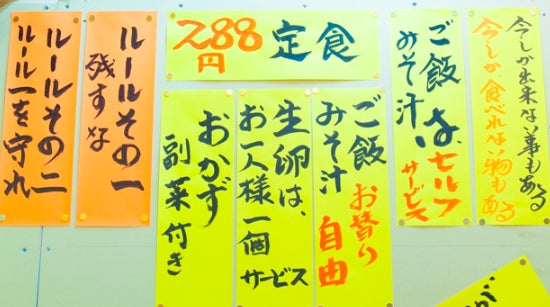 今しか出来ない事もある
今しか食べれない物もある
ご飯は、セルフ
みそ汁、サービス
288円
定食
ご飯
みそ汁
お替り
自由
生卵は、
お一人様一個
サービス
おかず
副菜付き
ルールその一
残すな
ルールその二
ルール一を守れ